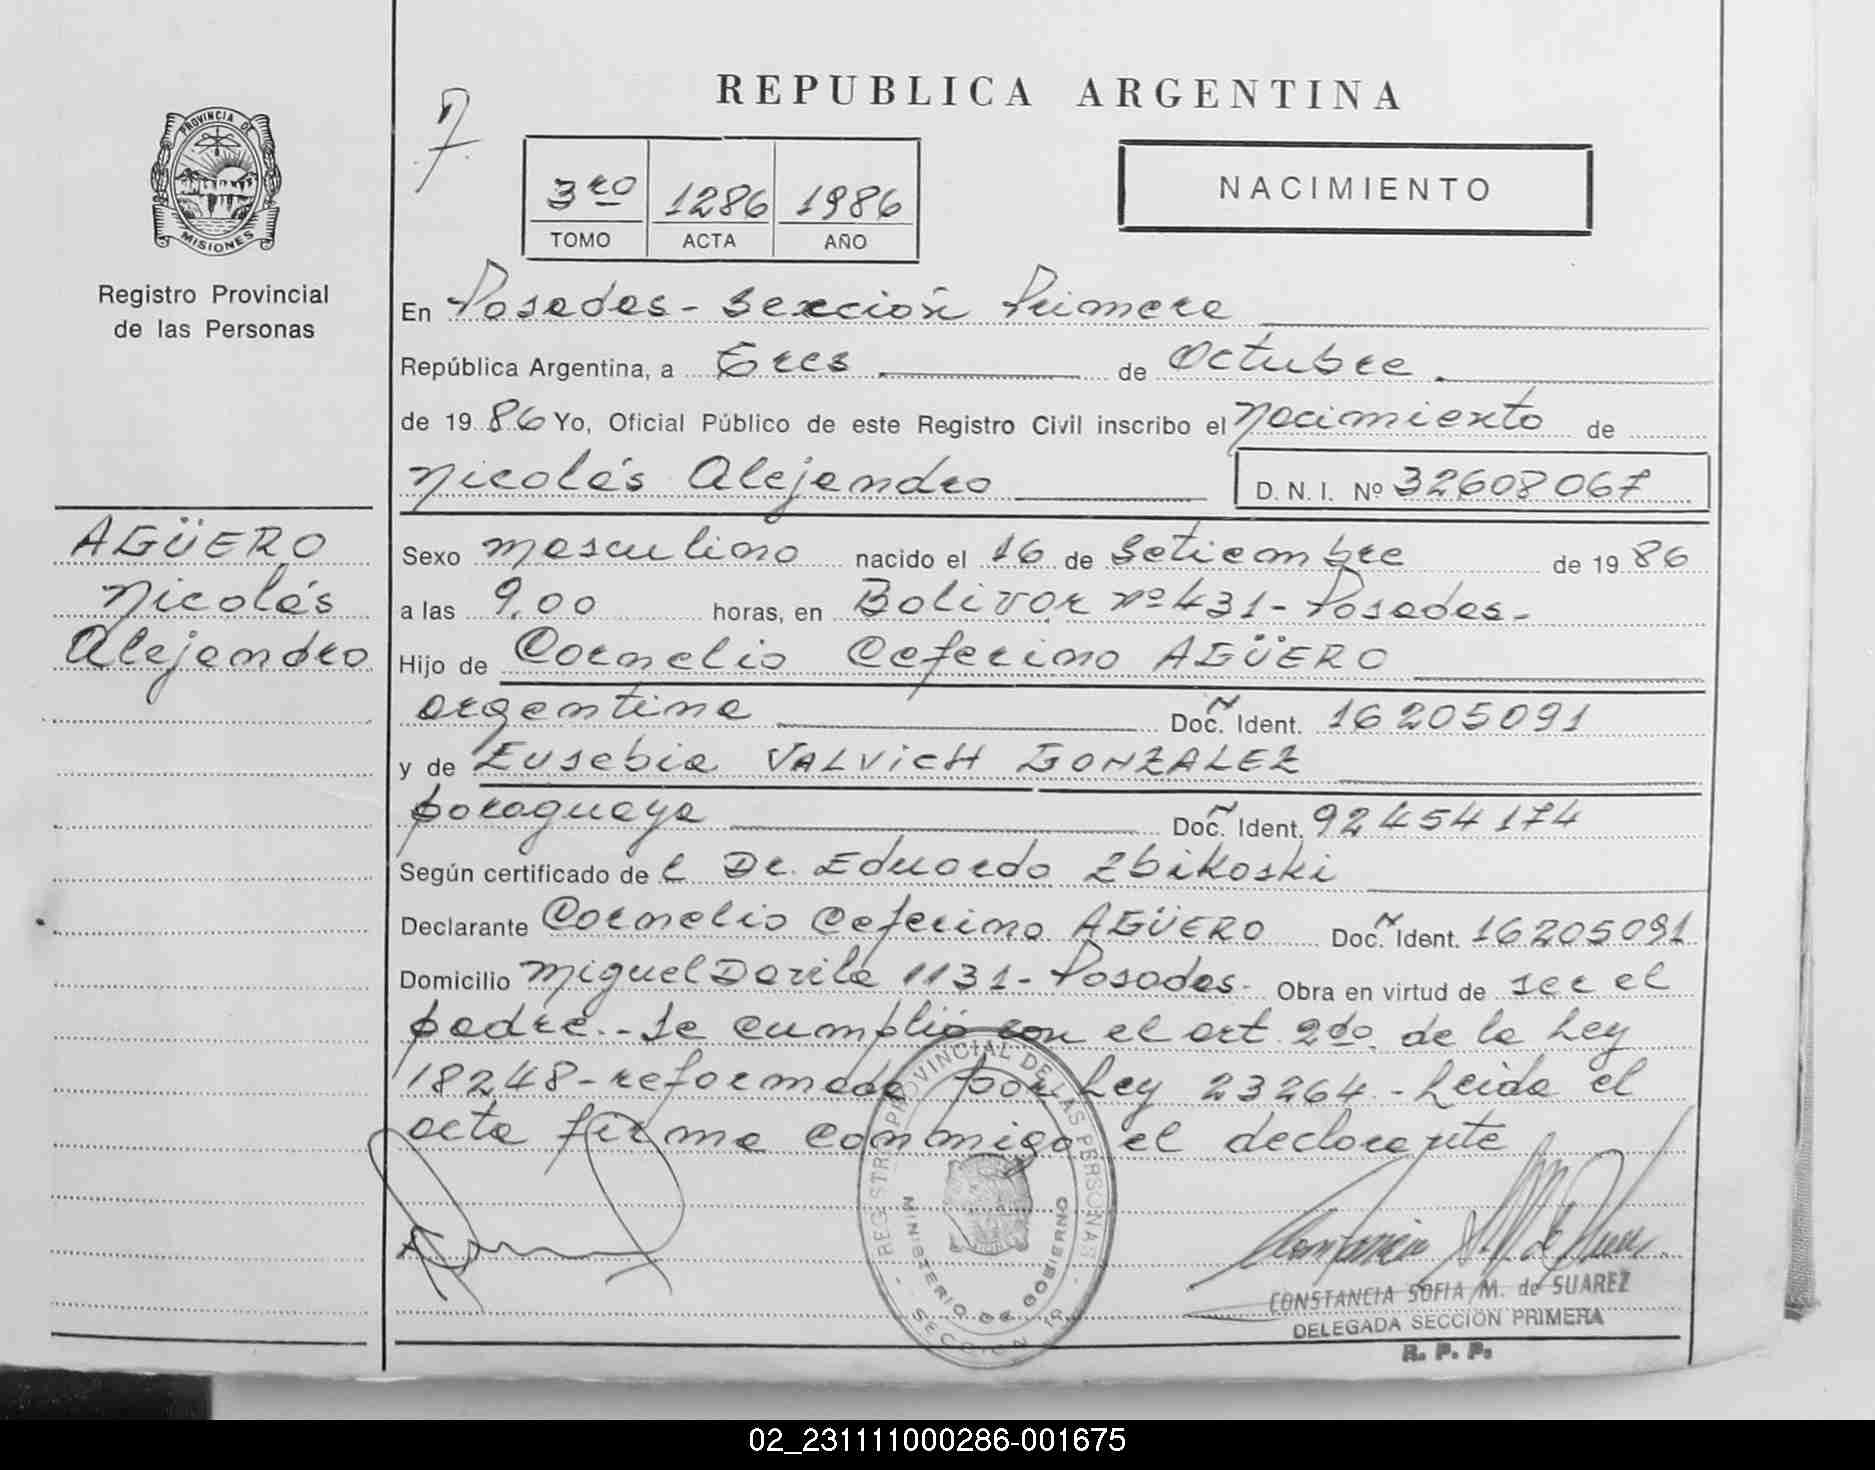 REPUBLICA ARGENTINA
PROVINCIA DE
MISIONES
Registro Provincial
de las Personas
3ro 1286 1986
TOMO ACTA AÑO
NACIMIENTO
En Posadas - Sección Primera
República Argentina, a Tres de Octubre
de 1986 Yo, Oficial Público de este Registro Civil inscribo el Nacimiento de
Nicolás Alejandro D. N. I. Nº 32608067
AGÜERO
Nicolás
Alejandro
Sexo masculino nacido el 16 de Setiembre de 1986
a las 9,00 horas, en Bolivar nº 431 - Posadas -
Hijo de Cornelio Ceferino AGÜERO
argentina Doc. Ident. 16205091
y de Eusebia VALVICH GONZALEZ
paraguaya Doc. Ident. 92454174
Según certificado de l Dr. Eduardo Zbikoski
Declarante Cornelio Ceferino AGÜERO Doc. Ident. 16205091
Domicilio Miguel Davila 1131 - Posadas - Obra en virtud de ser el
padre. - Se cumplió con el art. 2do. de la Ley
18248 - reformada por Ley 23264. - Leida el
acta firma conmigo el declarante
REGISTRO PROVINCIAL DE LAS PERSONAS
MINISTERIO DE GOBIERNO
SECCION 1a
CONSTANCIA SOFIA M. de SUAREZ
DELEGADA SECCION PRIMERA
R. P. P.
02_231111000286-001675